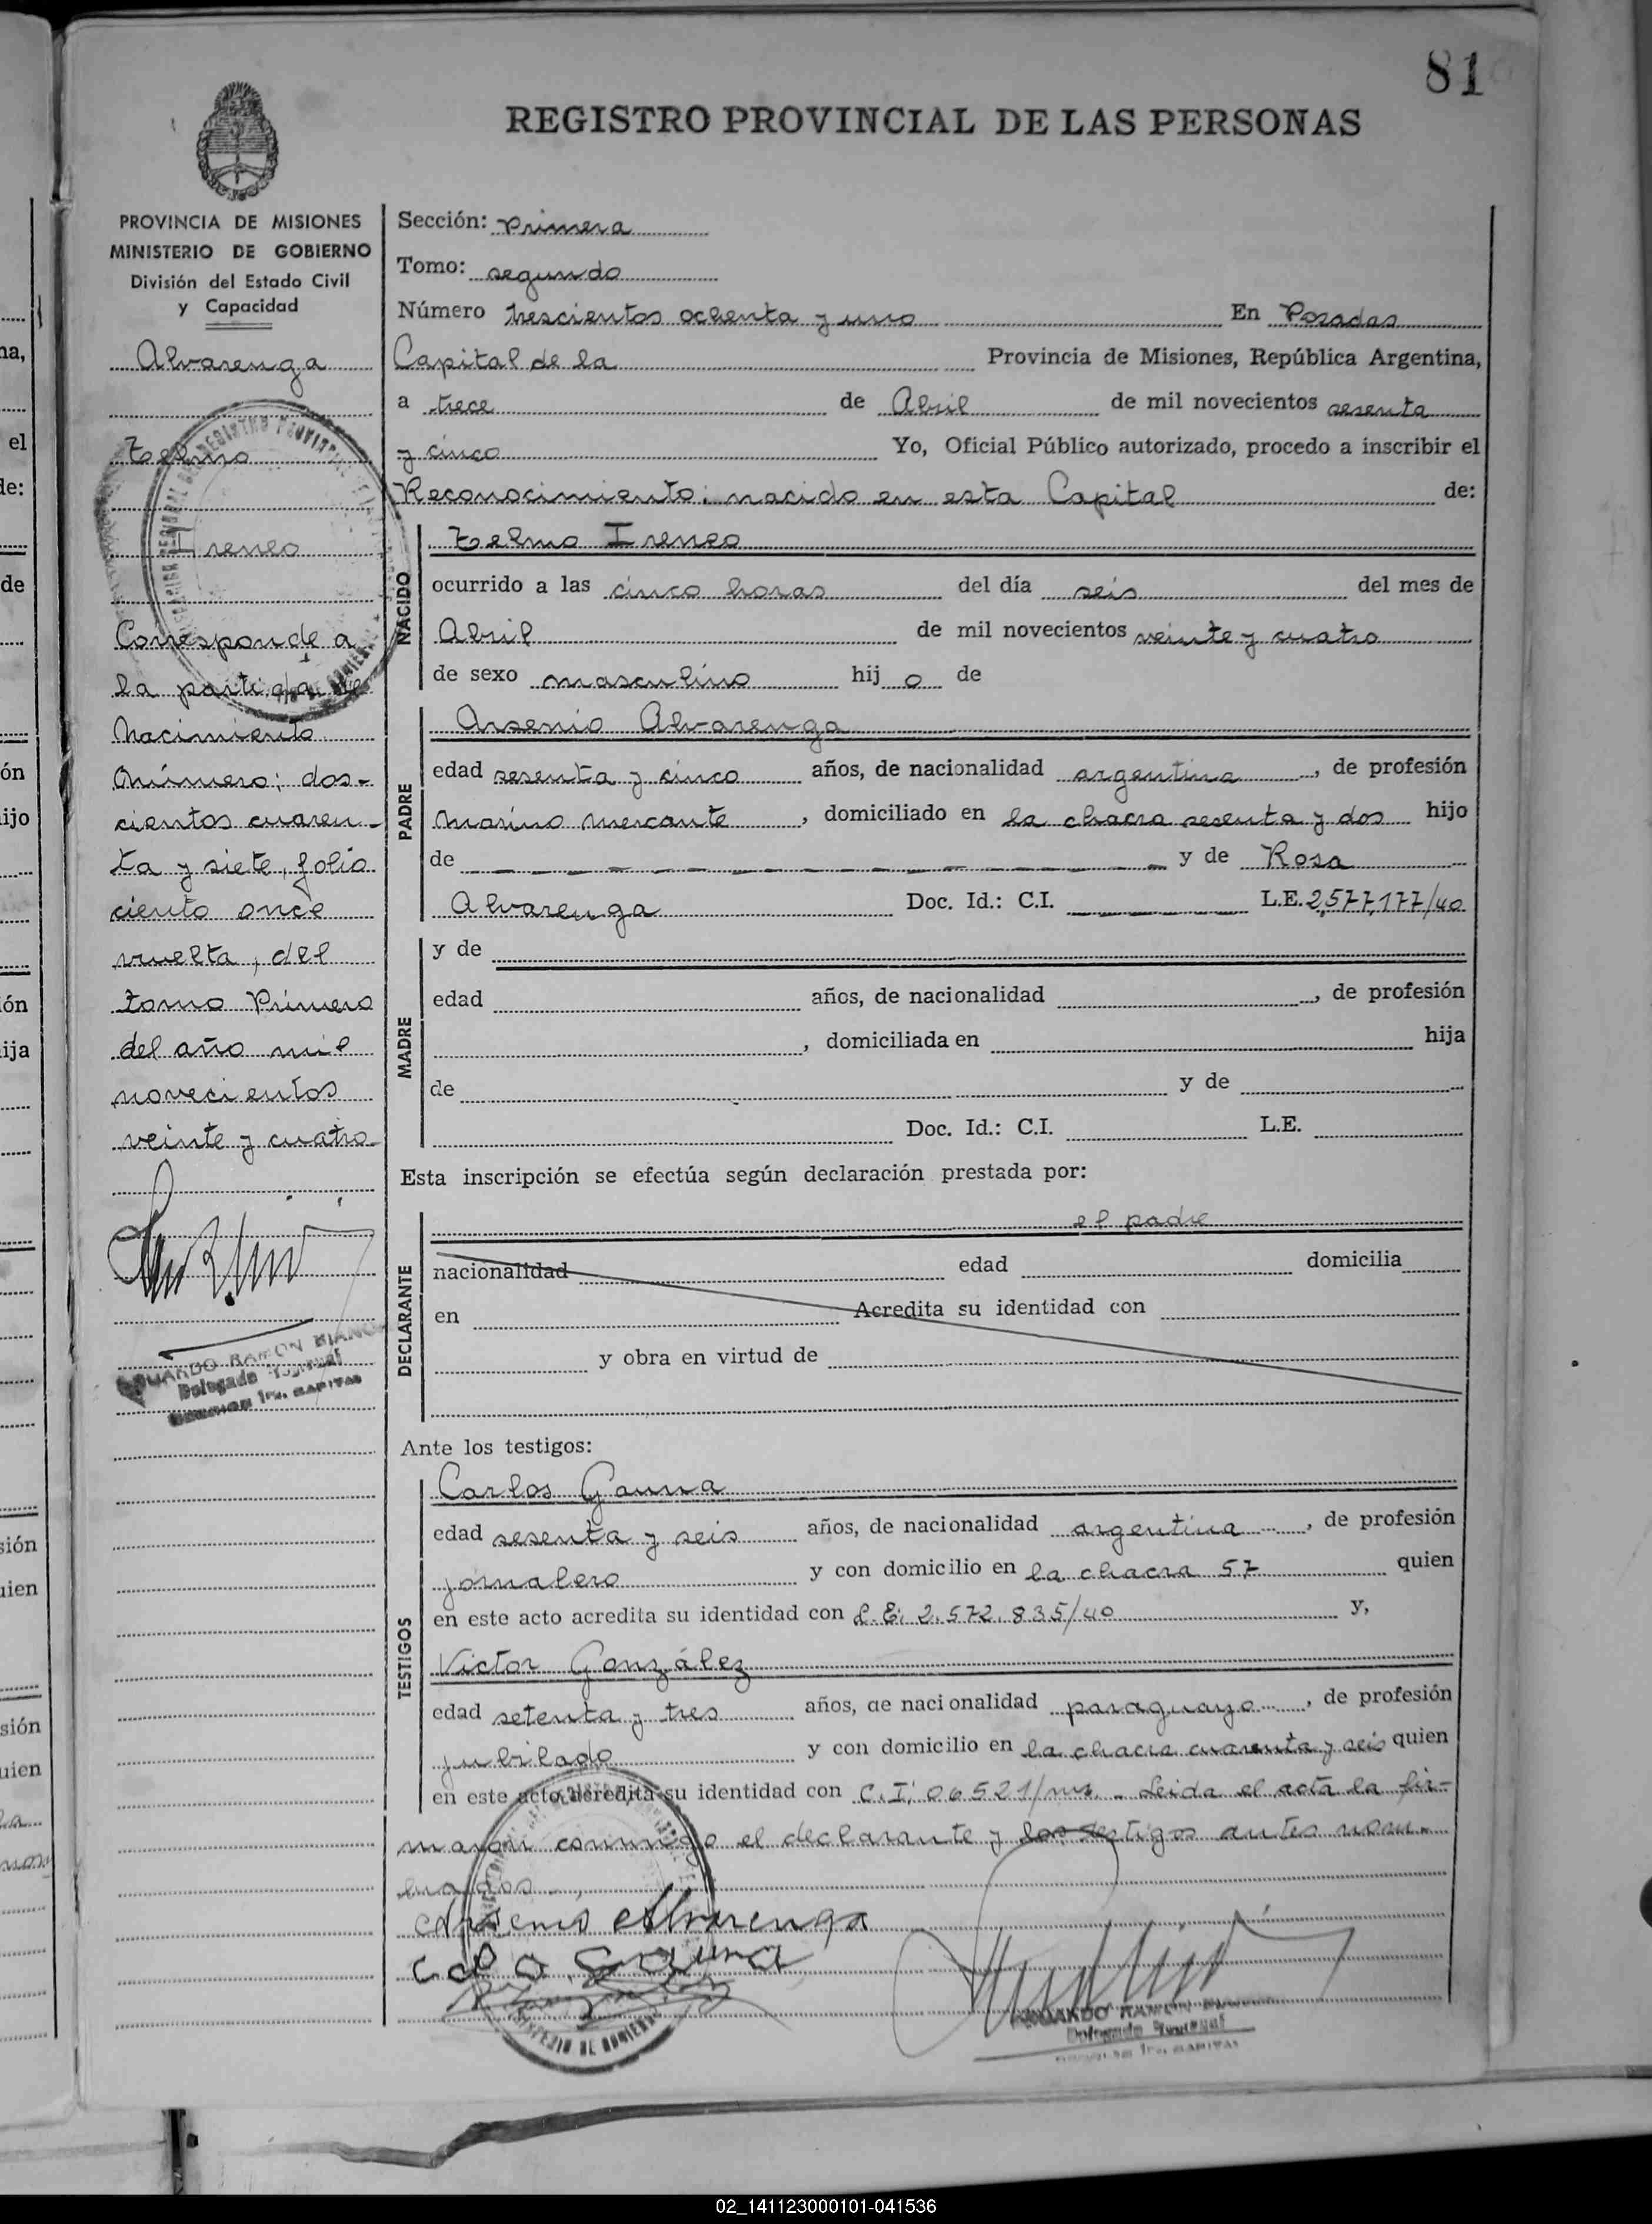 81
REGISTRO PROVINCIAL DE LAS PERSONAS
PROVINCIA DE MISIONES
MINISTERIO DE GOBIERNO
División del Estado Civil
y Capacidad
Alvarenga
Telmo
Ireneo
Corresponde a
la partida de
Nacimiento
Número: dos-
cientos cuaren-
ta y siete, folio
ciento once
vuelta, del
tomo Primero
del año mil
novecientos
veinte y cuatro
Sección: Primera
Tomo: segundo
Número trescientos ochenta y uno En Posadas
Capital de la Provincia de Misiones, República Argentina,
a trece de Abril de mil novecientos sesenta
y cinco Yo, Oficial Público autorizado, procedo a inscribir el
Reconocimiento: nacido en esta Capital de:
NACIDO
Telmo Ireneo
ocurrido a las cinco horas del día seis del mes de
Abril de mil novecientos veinte y cuatro
de sexo masculino hijo de
PADRE
Arsenio Alvarenga
edad sesenta y cinco años, de nacionalidad argentina, de profesión
Marino mercante, domiciliado en la chacra sesenta y dos hijo
de y de Rosa
Alvarenga Doc. Id.: C.I. L.E. 2,577,177/40
MADRE
y de
edad años, de nacionalidad , de profesión
, domiciliada en hija
de y de
Doc. Id.: C.I. L.E.
Esta inscripción se efectúa según declaración prestada por:
DECLARANTE
el padre
nacionalidad edad domicilia
en Acredita su identidad con
y obra en virtud de
Ante los testigos:
TESTIGOS
Carlos Gauna
edad sesenta y seis años, de nacionalidad argentina, de profesión
jornalero y con domicilio en la chacra 57 quien
en este acto acredita su identidad con L.E. 2.572.835/40 y,
Victor González
edad setenta y tres años, de nacionalidad paraguayo, de profesión
jubilado y con domicilio en la chacra cuarenta y seis quien
en este acto acredita su identidad con C.I. 06521/ms. - Leida el acta la fir-
maron conmigo el declarante y los testigos antes nom-
brados.
Arsenio Alvarenga
Gauna
EDUARDO RAMON
Delegado
02_141123000101-041536